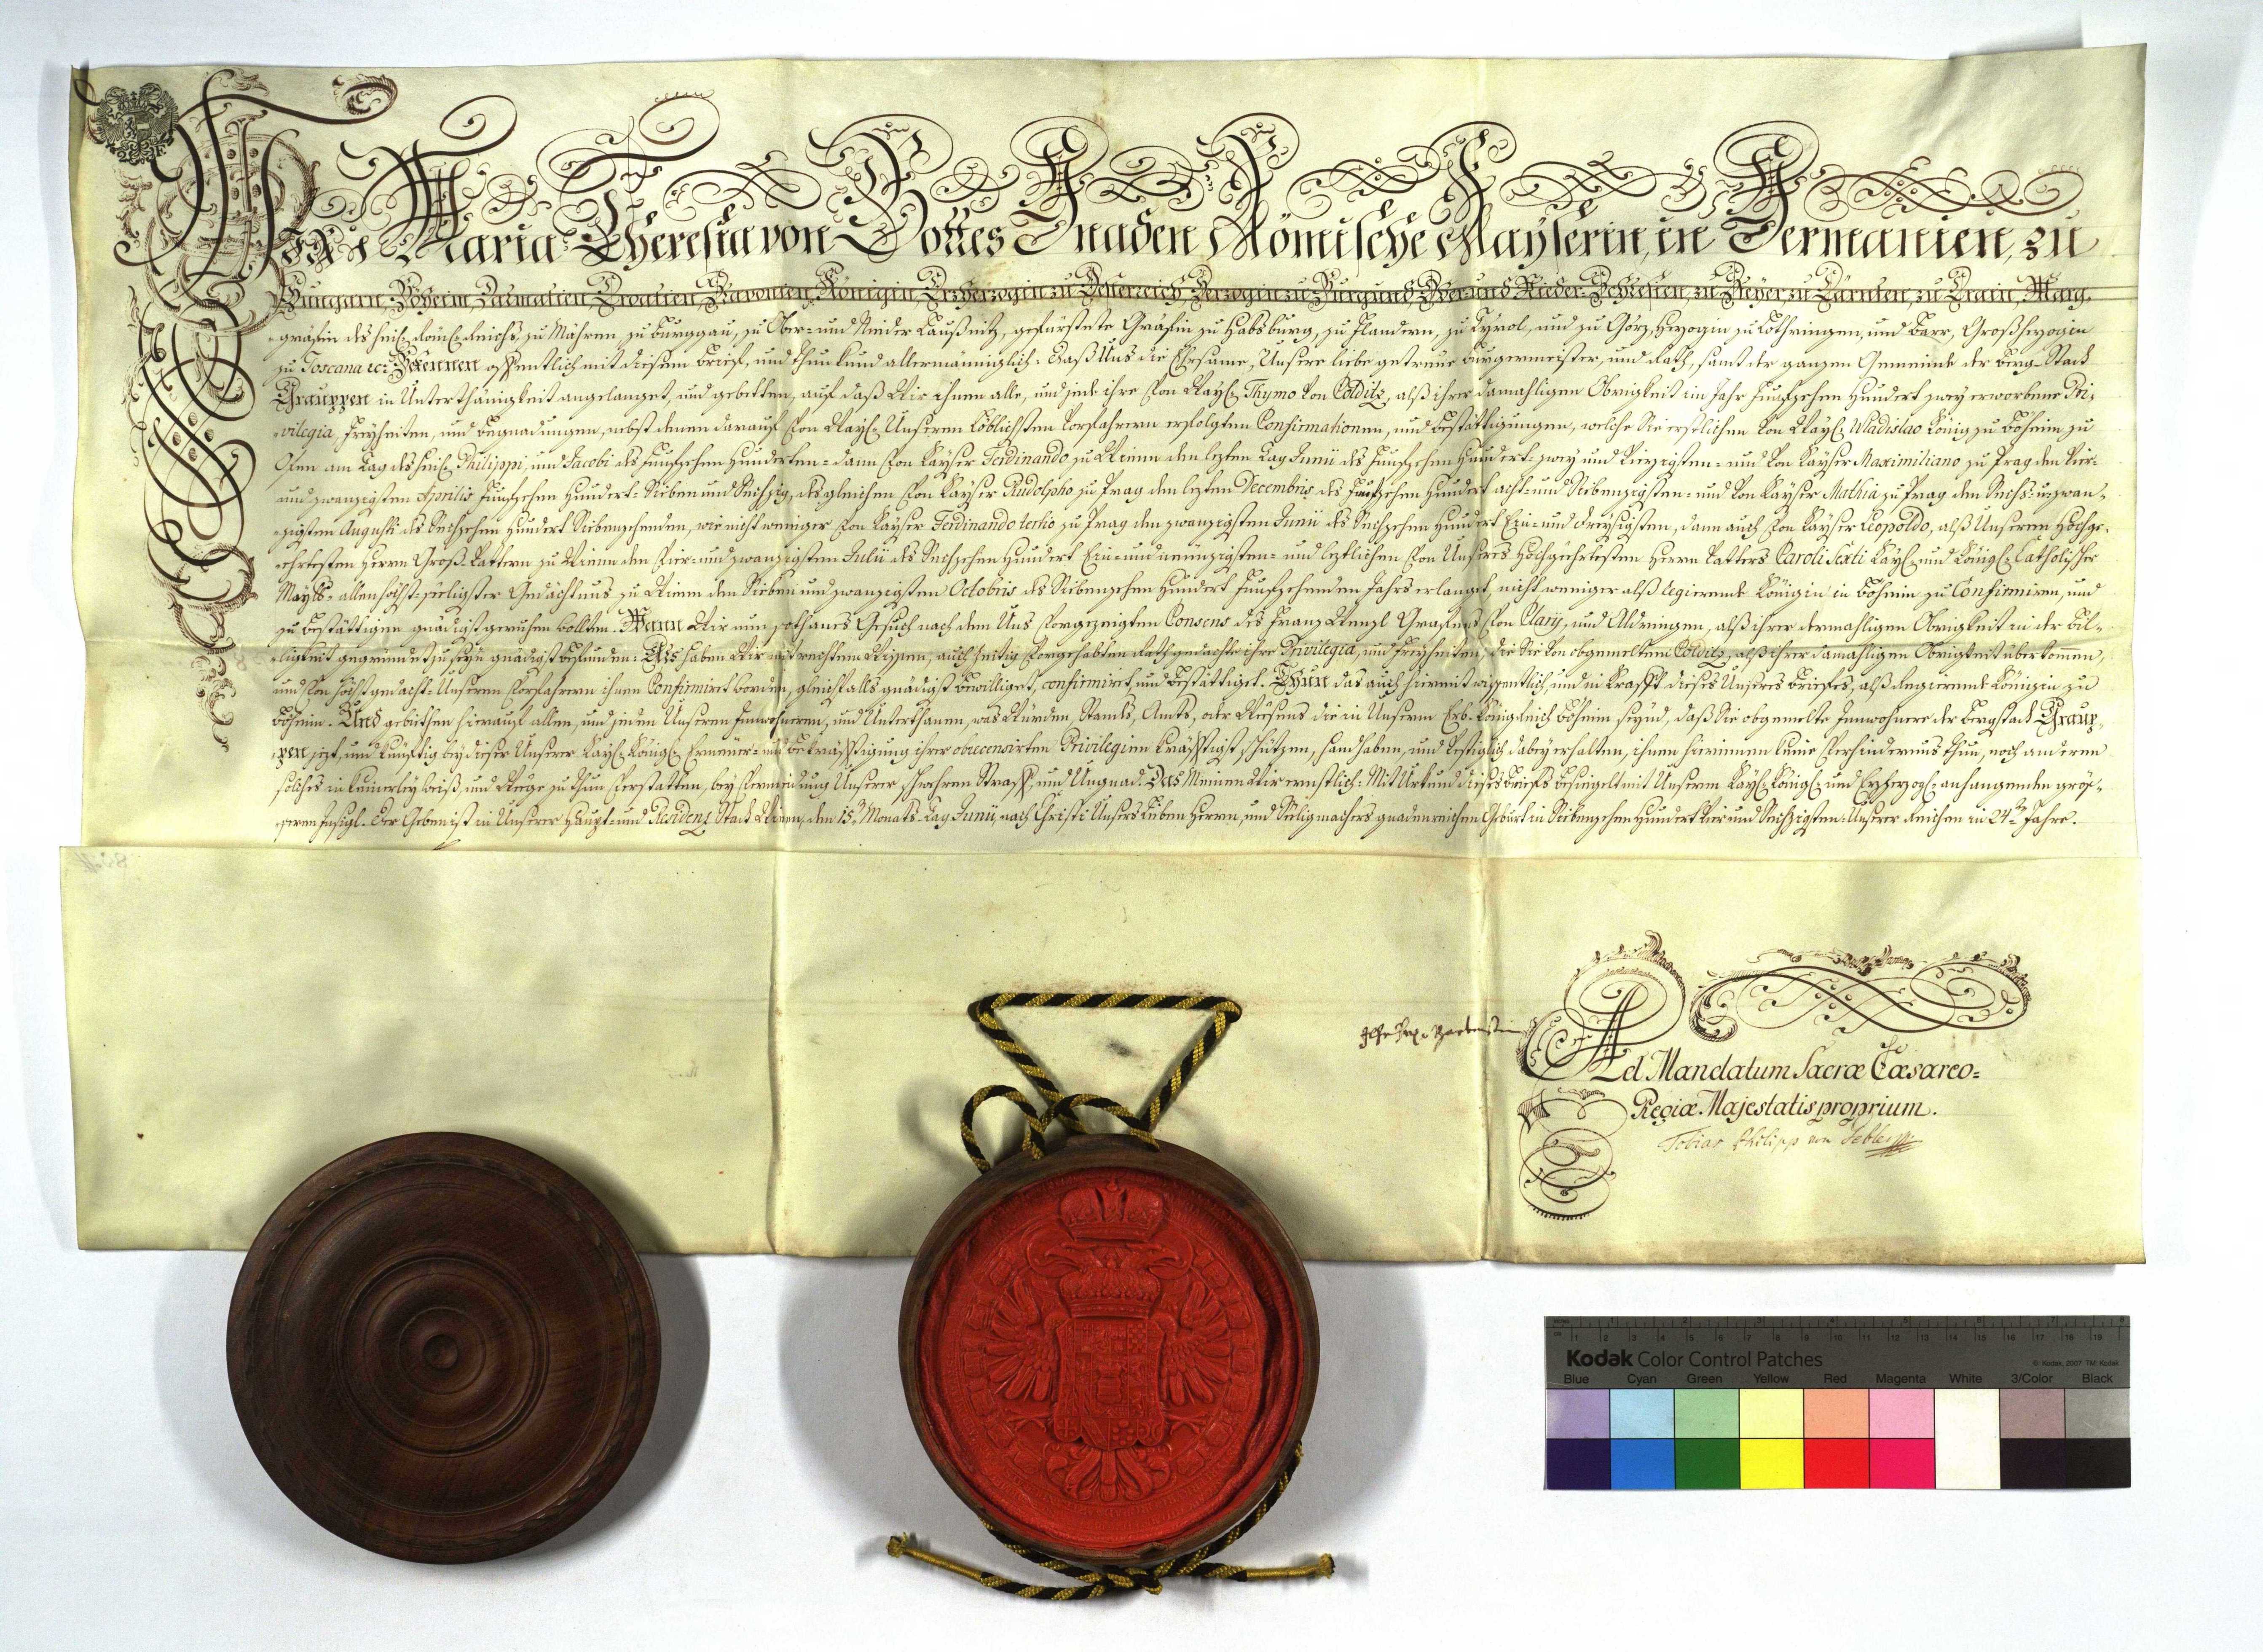 Wir Maria Theresia von Gottes Gnaden Römische Kayserin, in Germanien, zu
Hungarn, Böheim, Dalmatien, Croatien, Slavonien, Königin, Erzherzogin zu Österreich, Herzogin zu Burgund, Ober- und Nieder-Schlesien, zu Steyer, zu Cärnten, zu Crain, Marg-
gräfin des heil: Röm: Reichs, zu Mähren, zu Burggau, zu Ober- und Nieder Laußnitz, gefürstete Gräfin zu Habsburg, zu Flandern, zu Tyrol, und zu Görz, Herzogin zu Lothringen, und Barr, Großherzogin
zu Toscana &c: Bekennen offentlich mit diesem Brief, und thun kund allermänniglich: Daß Uns die Ehrsame, Unsere liebe getreue Burgermeister, und Rath, samt der ganzen Gemeinde der Berg-Stadt
Grauppen in Unterthänigkeit angelanget, und gebetten, auf daß Wir ihnen alle, und jede ihre von Weyl: Thymo von Colditz, alß ihrer damahligen Obrigkeit im Jahr Funfzehen Hundert zwey erworbene Pri-
vilegia, Freyheiten, und Begnadungen, nebst denen darauf von Weyl: Unseren Löblichsten Vorfahrern erfolgten Confirmationen, und Bestättigungen, welche Sie erstlichen von Weyl: Wladislao König zu Böheim zu
Ofen am Tag des heil: Philippi, und Jacobi des Funfzehen Hunderten = dann von Kayser Ferdinando zu Wienn den lezten Tag Junii des Funfzehen Hundert-zwey und Vierzigsten = und von Kayser Maximiliano zu Prag den Vier-
und zwanzigsten Aprilis Funfzehen Hundert-Sieben und Sechzig, desgleichen von Kayser Rudolpho zu Prag den lezten Decembris des Funfzehen Hundert acht- und Siebenzigsten = und von Kayser Mathia zu Prag den Sechs-u: zwan-
zigsten Augusti des Sechzehen Hundert Siebenzehenden, wie nicht weniger von Kayser Ferdinando tertio zu Prag den zwanzigsten Junii des Sechzehen Hundert Ein- und dreysigsten, dann auch von Kayser Leopoldo, alß Unseren Hochge-
ehrtesten Herrn Groß-Vattern zu Wienn den Vier- und zwanzigsten Julii des Sechzehen Hundert Ein- und neunzigsten = und leztlichen von Unseres Hochgeehrtesten Herrn Vatters Caroli Sexti Kayl: und Königl: Catholischer
Maytt: allerhöchst-seeligster Gedächtnus zu Wienn den Sieben und zwanzigsten Octobris des Siebenzehen Hundert Funfzehenden Jahrs erlanget, nicht weniger alß Regierende Königin in Böheim zu Confirmiren, und
zu bestättigen gnädigst geruhen wollten. Wann Wir nun sothanes Gesuch nach dem Uns vorgezeigten Consens des Franz Wenzl Grafens von Clary, und Aldringen, alß ihrer dermahligen Obrigkeit in der Bil-
ligkeit gegründet zu seyn gnädigst befunden: Als haben Wir mit rechtem Wissen, auch zeitig vorgehabten Rath gedachte ihre Privilegia, und Freyheiten, die Sie von obgemeltem Colditz, alß ihrer damahligen Obrigkeit überkom̄en,
und von höchstgedacht-Unseren Vorfahrern ihnen Confirmiret worden, gleichfalls gnädigst bewilliget, confirmiret, und bestättiget. Thun das auch hiermit wissentlich, und in Krafft dieses Unseres Briefes, alß Regierende Königin zu
Böheim. Und gebiethen hierauf allen, und jeden Unseren Innwohnern, und Unterthanen, was Würden, Stands, Amts, oder Weesens die in Unserm Erb-Königreich Böheim seynd, daß Sie obgemelte Innwohnere der Bergstadt Graup-
pen jezt, und künftig bey dieser Unserer Kayl: Königl: Erneuer- und Bekräfftigung ihrer obrecensirten Privilegien kräfftigst schützen, handhaben, und vestiglich dabey erhalten, ihnen hierinnen keine Verhindernus thun, noch anderen
solches in keinerley weiß, und Weege zu thun verstatten, bey Vermeidung Unserer schwehren Straff, und Ungnad. Das Meinen Wir ernstlich: Mit Urkund dieses Briefs besiegelt mit Unseren Kayl: Königl: und Erzherzogl: anhangenden grös-
seren Insigl. Der Geben ist in Unserer Haupt- und Residenz Stadt Wienn, den 15. Monats-Tag Junii, nach Christi Unsers Lieben Herrn, und Seeligmachers gnadenreichen Geburt in Siebenzehen Hundert Vier und Sechzigsten, Unserer Reichen in 24ten Jahre.
Ad Mandatum Sacræ Cæsareo-
Regiæ Majestatis proprium.
Tobias Philipp von Gebler
Kodak Color Control Patches
© Kodak, 2007 TM: Kodak
Blue Cyan Green Yellow Red Magenta White 3/Color Black